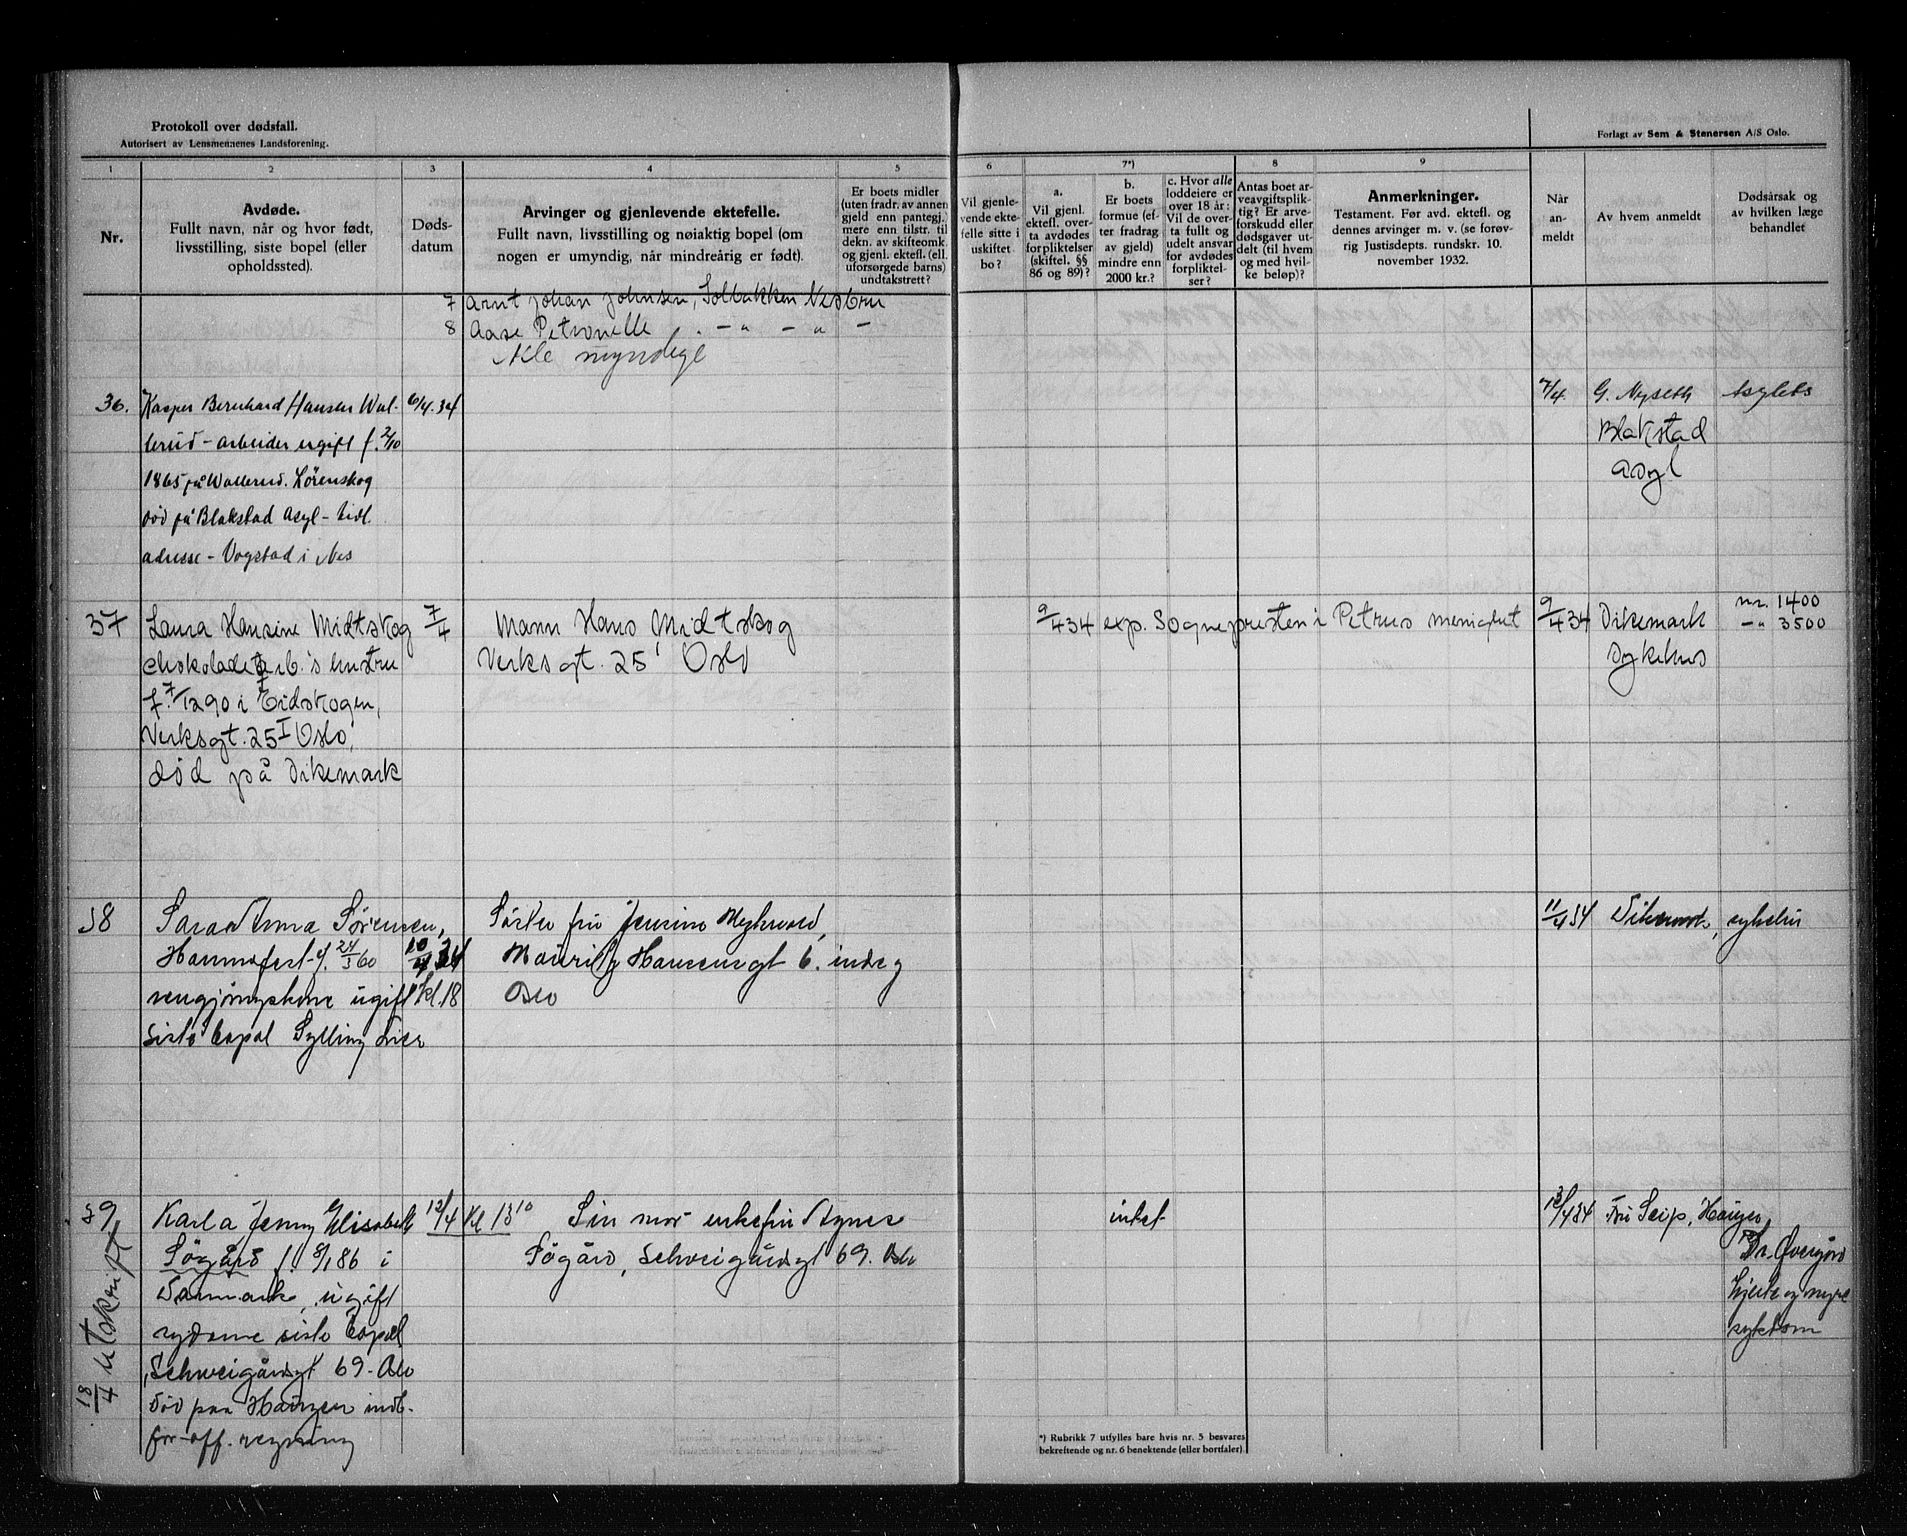 Protokoll over dødsfall.
Autorisert av Lensmennenes Landsforening.
Forlagt av Sem & Stenersen A/S Oslo.
1
2
3
4
5
6
7*)
8
9
Nr.
Avdøde.
Fullt navn, når og hvor født,
livsstilling, siste bopel (eller
opholdssted).
Døds-
datum
Arvinger og gjenlevende ektefelle.
Fullt navn, livsstilling og nøiaktig bopel (om
nogen er umyndig, når mindreårig er født).
Er boets midler
(uten fradr. av annen
gjeld enn pantegj.)
mere enn tilstr. til
dekn. av skifteomk.
og gjenl. ektef. (ell.
uforsørgede barns)
undtakstrett?
Vil gjenle-
vende ekte-
felle sitte i
uskiftet
bo?
a.
Vil gjenl.
ektefl. over-
ta avdødes
forpliktelser
(skiftel. §§
86 og 89)?
b.
Er boets
formue (ef-
ter fradrag
av gjeld)
mindre enn
2000 kr.?
c. Hvor alle
loddeiere er
over 18 år:
Vil de over-
ta fullt og
udelt ansvar
for avdødes
forpliktel-
ser?
Antas boet ar-
veavgiftsplik-
tig? Er arve-
forskudd eller
dødsgaver ut-
delt (til hvem
og med hvil-
ke beløp)?
Anmerkninger.
Testament. Før avd. ektefl. og
dennes arvinger m. v. (se forøv-
rig Justisdepts. rundskr. 10.
november 1932.
Når
an-
meldt
Av hvem anmeldt
Dødsårsak og
av hvilken læge
behandlet
7 Arnt Johan Johnsen, Solbakken Nesbru
8 Aase Petronelle - " - " -
Alle myndige
36. Kasper Bernhard Hansen Wal- 6/4.34
lerud - arbeider ugift f. 2/10
1865 på Wallerud. Lørenskog
død på Blakstad Asyl - tidl.
adresse - Vogstad i Nes
7/4. G. Nyseth Asylets
Blakstad
Asyl
37 Laura Hansine Midtskog 7/4 Mann Hans Midtskog
chokoladearb.'s hustru Verksgt. 25, Oslo
f. 7/1290 i Eidskogen,
Verksgt. 25 I Oslo,
død på Dikemark
9/4 34 exp. Sognepresten i Petrus menighet 9/4 34 Dikemark nr. 1400
sykehus -"- 3500
38 Sara Anna Sørensen, Søster fru Jensine
Hammerfest f. 24/3 60 10/4 34 Mauritz Hansensgt 6. indrg
rengjøringskone ugift kl. 18 Oslo
siste bopel Sylling Lier
11/4 34 Dikemark, sykehus
39 Karla Jenny Elisabeth 12/4 Kl 13 10 Sin mor enkefru Agnes
Søgård f. 8/1 86 i Søgård, Schweigårdsgt 69. Oslo
Danmark, ugift
sydame siste bopel
Schweigårdsgt 69 - Oslo
død paa Hauger
for off. regning
18/4 utskrift
intet
13/4 34 Fru Seip, Hauger
Dr.
hjerte og nyre
sykdom
*) Rubrikk 7 utfylles bare hvis nr. 5 besvares
bekreftende og nr. 6 benektende (eller bortfaler).